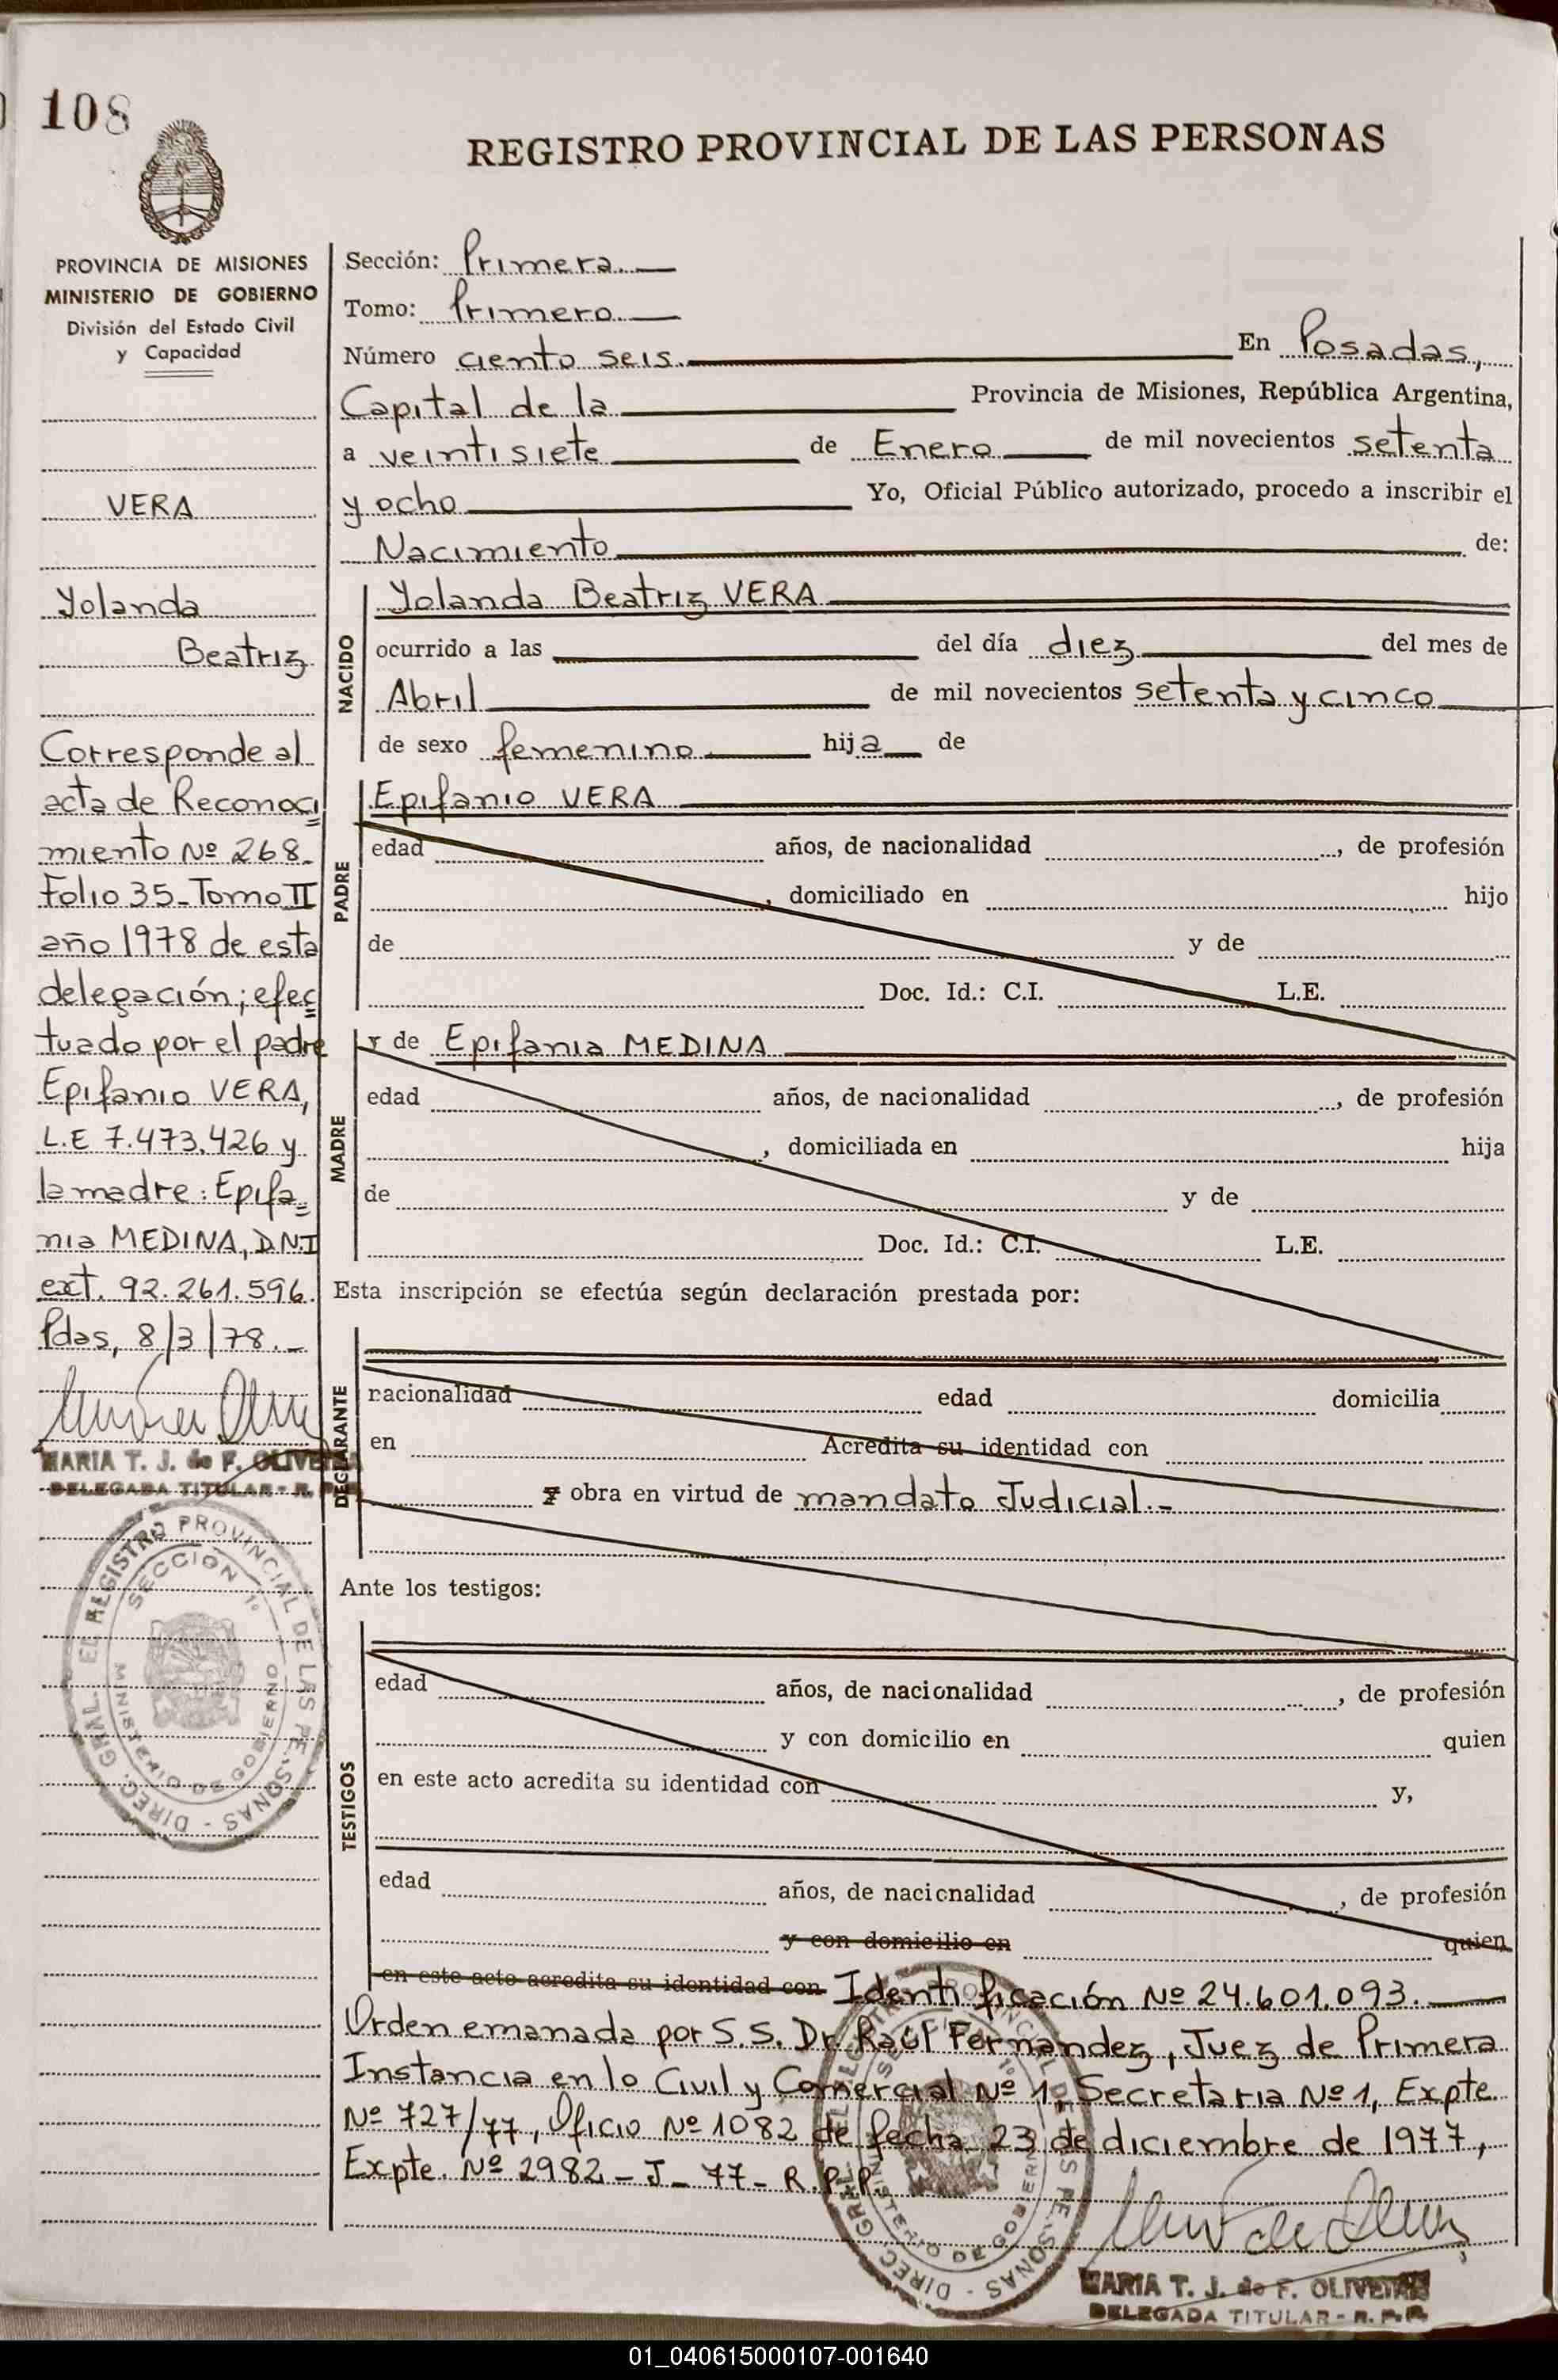 108
REGISTRO PROVINCIAL DE LAS PERSONAS
PROVINCIA DE MISIONES
MINISTERIO DE GOBIERNO
División del Estado Civil
y Capacidad
VERA
Yolanda
Beatriz
Corresponde al
acta de Reconoci
miento Nº 268.
Folio 35-Tomo II
año 1978 de esta
delegación; efec
tuado por el padre
Epifanio VERA,
L.E 7.473.426 y
la madre: Epifa
nia MEDINA, D.N.I
ext. 92.261.596.
Pdas, 8/3/78.-
MARIA T. J. de F. OLIVEIRA
DELEGADA TITULAR - R. P. P.
DIREC. GRAL. EL REGISTRO PROVINCIAL DE LAS PE SONAS
SECCION 1º
MINISTERIO DE GOBIERNO
Sección: Primera
Tomo: Primero
Número ciento seis. En Posadas,
Capital de la Provincia de Misiones, República Argentina,
a veintisiete de Enero de mil novecientos setenta
y ocho Yo, Oficial Público autorizado, procedo a inscribir el
Nacimiento de:
NACIDO
Yolanda Beatriz VERA
ocurrido a las del día diez del mes de
Abril de mil novecientos setenta y cinco
de sexo femenino hija de
PADRE
Epifanio VERA
edad años, de nacionalidad , de profesión
, domiciliado en hijo
de y de
Doc. Id.: C.I. L.E.
MADRE
y de Epifania MEDINA
edad años, de nacionalidad , de profesión
, domiciliada en hija
de y de
Doc. Id.: C.I. L.E.
Esta inscripción se efectúa según declaración prestada por:
DECLARANTE
nacionalidad edad domicilia
en Acredita su identidad con
y obra en virtud de mandato Judicial.-
Ante los testigos:
TESTIGOS
edad años, de nacionalidad , de profesión
y con domicilio en quien
en este acto acredita su identidad con y,
edad años, de nacionalidad , de profesión
y con domicilio en quien
en este acto acredita su identidad con Identificación Nº 24.601.093.
Orden emanada por S.S. Dr. Raúl Fernandez, Juez de Primera
Instancia en lo Civil y Comercial Nº 1, Secretaria Nº 1, Expte.
Nº 727/77, Oficio Nº 1082 de fecha 23 de diciembre de 1977,
Expte. Nº 2982 - J - 77 - R.P.P.
DIREC. GRAL. EL REGISTRO PROVINCIAL DE LAS PE SONAS
SECCION 1º
MINISTERIO DE GOBIERNO
MARIA T. J. de F. OLIVEIRA
DELEGADA TITULAR - R. P. P.
01_040615000107-001640